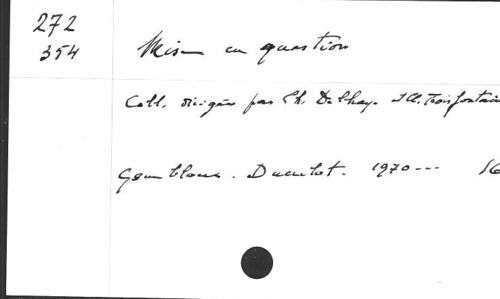 272
354
Mise en question
Coll. dirigée par Ch. Delhaye et Cl. Troisfontain
Gembloux. Duculot. 1970--- 16